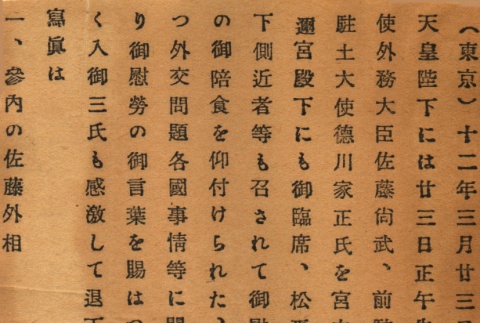 （東京）十二年三月廿三
天皇陛下には廿三日正午
使外務大臣佐藤尙武、前
駐土大使德川家正氏を宮
邇宮殿下にも御臨席、松
下側近者等も召されて御
の御陪食を仰付けられた
つ外交問題各國事情等に
り御慰勞の御言葉を賜は
く入御三氏も感激して退
寫眞は
一、參內の佐藤外相